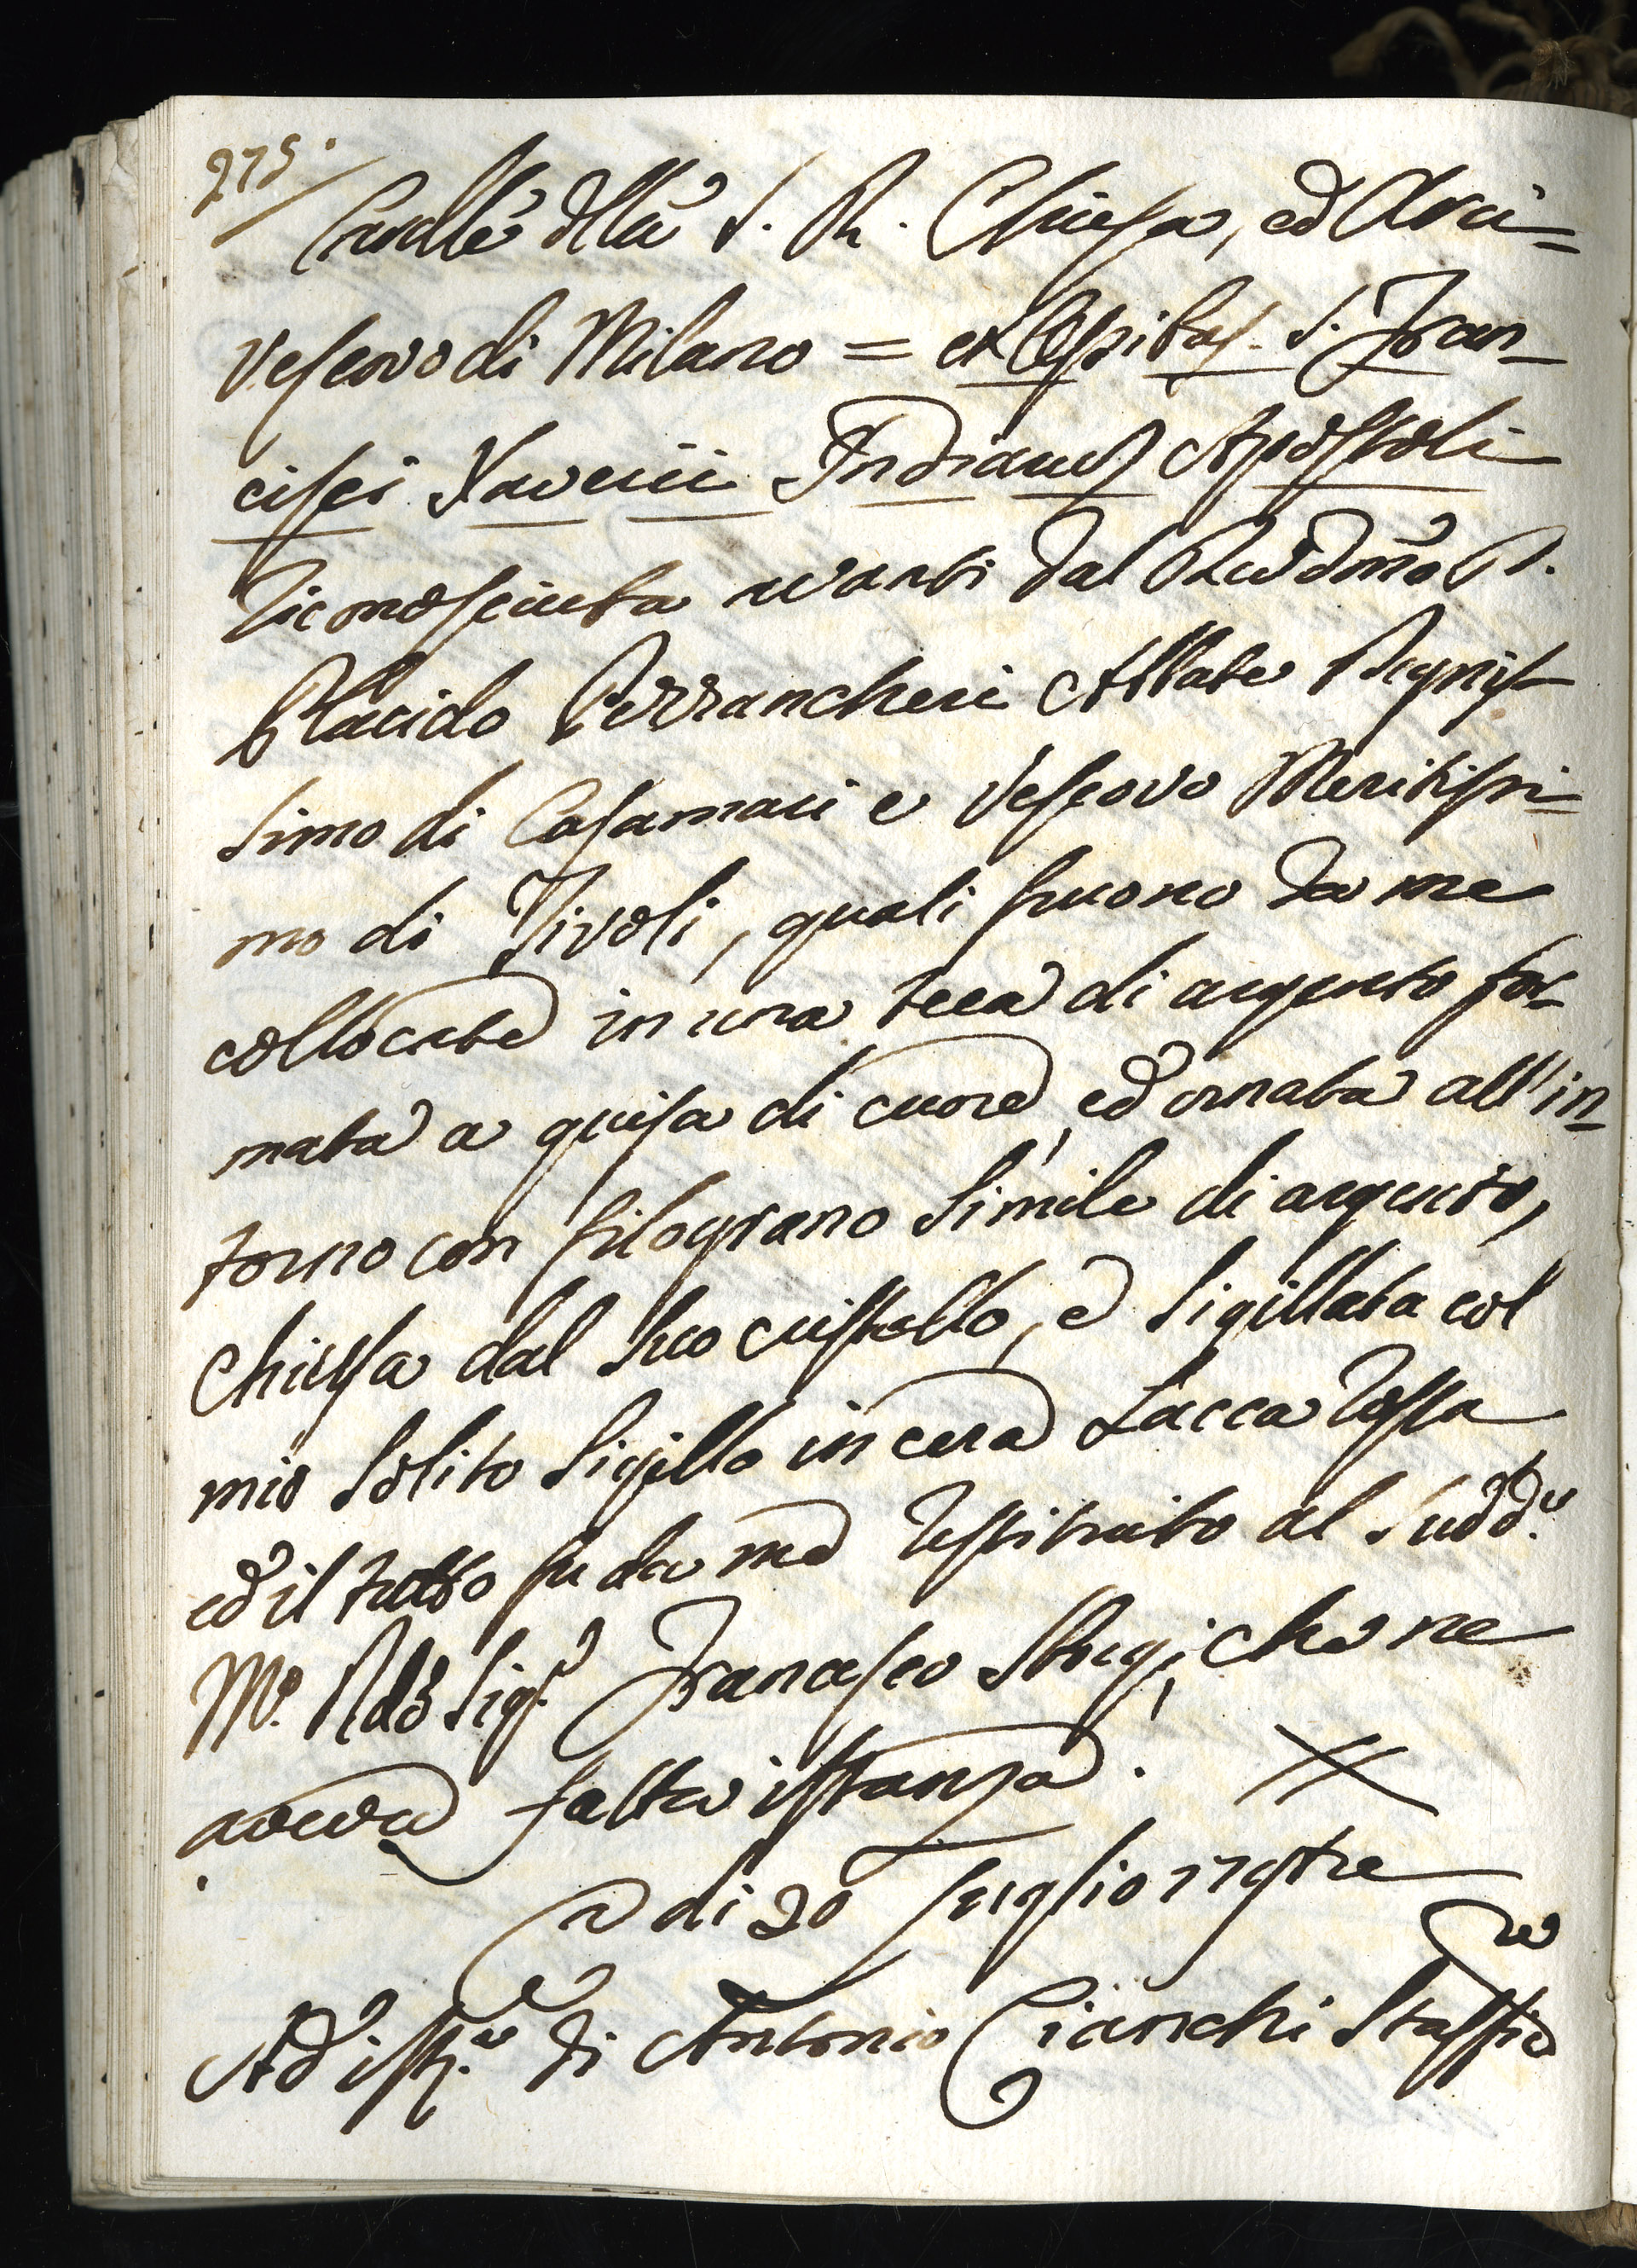 275.
Cardle della S. R. Chiesa, ed Arci=
vescovo di Milano = ex Ossibus S. Fran-
cisci Xaverii Indiarum Apostoli
riconosciuta avanti dal Revdmo P.
Placido Pezzancheri Abbate Dignis-
simo di Casamari e Vescovo Meritissi=
mo di Tivoli, quali furono da me
collocate in una teca di argento for-
mata a guisa di cuore, ed ornata all'in-
torno con filograno simile di argento,
chiusa dal suo cristallo, e sigillata col
mio solito sigillo in cera Lacca rossa
ed il tutto fu da me restituito al sudd.e
M.o Rdo Sigr. Francesco Strigi, che ne
aveva fatta istanza.
a di 20 luglio 17
Ad ist.a di Antonio Cianchi Staffie
re